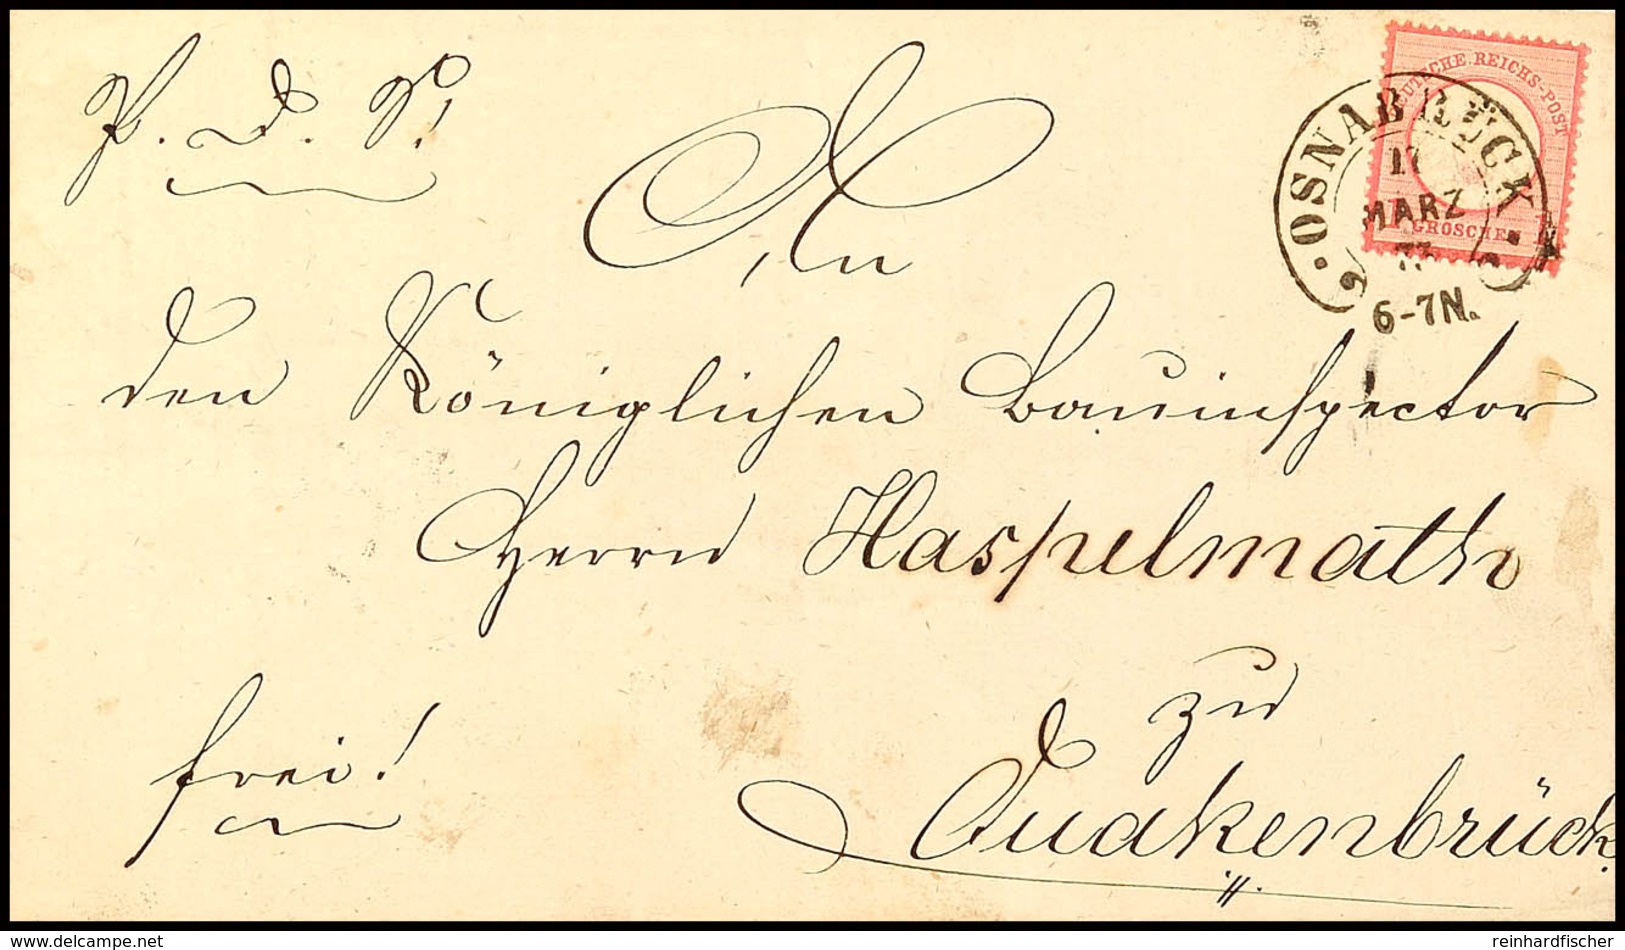 P. D. S!
DEUTSCHE REICHS-POST
GROSCHEN
OSNABRÜCK
17
MÄRZ
6-7N.
An
den Königlichen Bauinspector
Herrn Haspelmath
zu
frei!
Quakenbrück.
www.delcampe.net
reinhardfischer